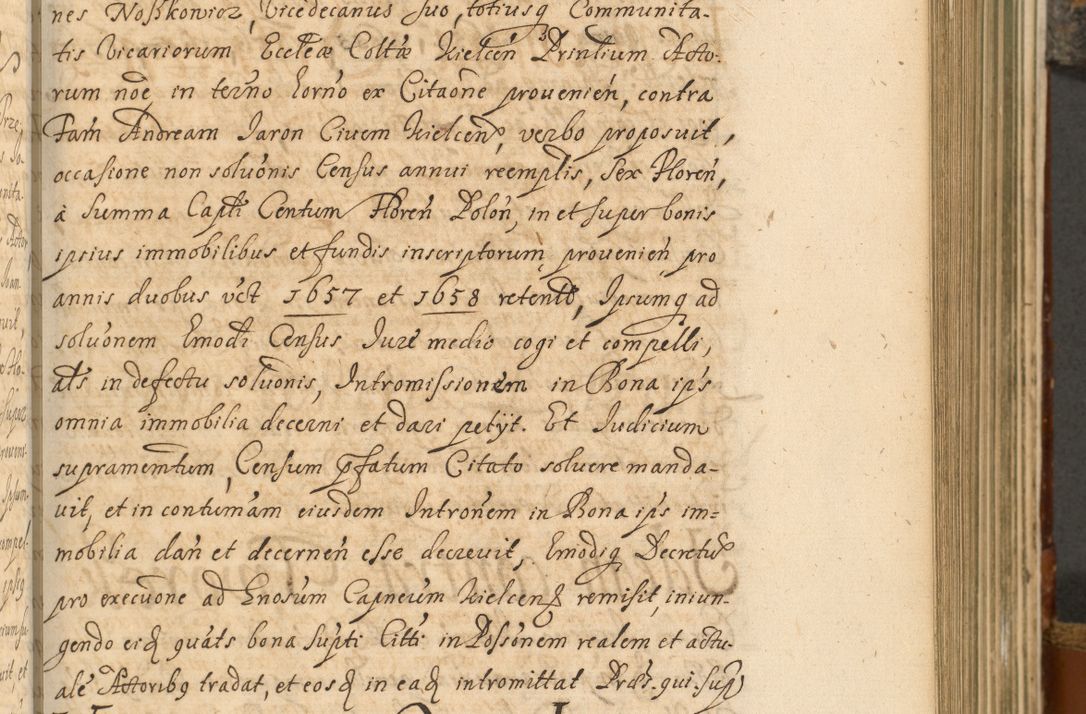 nes Noszkowicz, Vicedecanus suo, totiusq Communita-
tis Vicariorum Ecclæ Coltæ Kielcen Printium Acto-
rum noe in terno Corno ex Citaõne prouenien, contra
Fam Andream Jaron Ciuem Kielcen, verbo proposuit,
occasione non soluonis Census annui reemptlis, sex Floren,
à summa Capti Centum Floren Polon, in et super bonis
ipsius immobilibus et fundis inscriptorum prouenien pro
annis duobus vct 1657 et 1658 retento, Ipsumq ad
soluonem Emodi Census Jure medio cogi et compelli,
als in defectu soluonis, Intromissionem in Bona ips
omnia immobilia decerni et dari petijt. Et Judicium
supramemtum Censum pfatum Citato soluere manda-
uit, et in contumam eiusdem Intronem in Bona ips im=
mobilia dan et decernen esse decreuit, Emodiq Decretu
pro execuone ad Gnosum Capneum Kielcen remisit, iniun-
gendo eid quats bona supti Citti in Possonem realem et actu-
ale Actoribq tradat, et eosd in ead intromittat Præt. qui sup